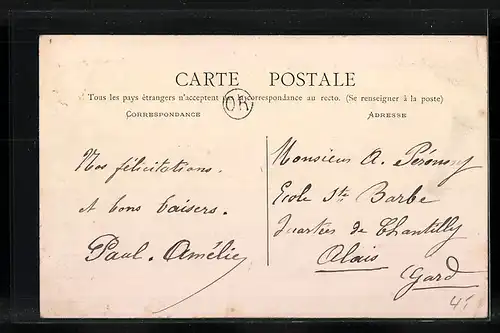 CARTE POSTALE
Tous les pays étrangers n'acceptent pas la correspondance au recto. (Se renseigner à la poste)
OR
CORRESPONDANCE
ADRESSE
Nos félicitations.
et bons baisers.
Paul. Amélie
Monsieur A.
Ecole Ste Barbe
Quartier de Chantilly
Alais
Gard